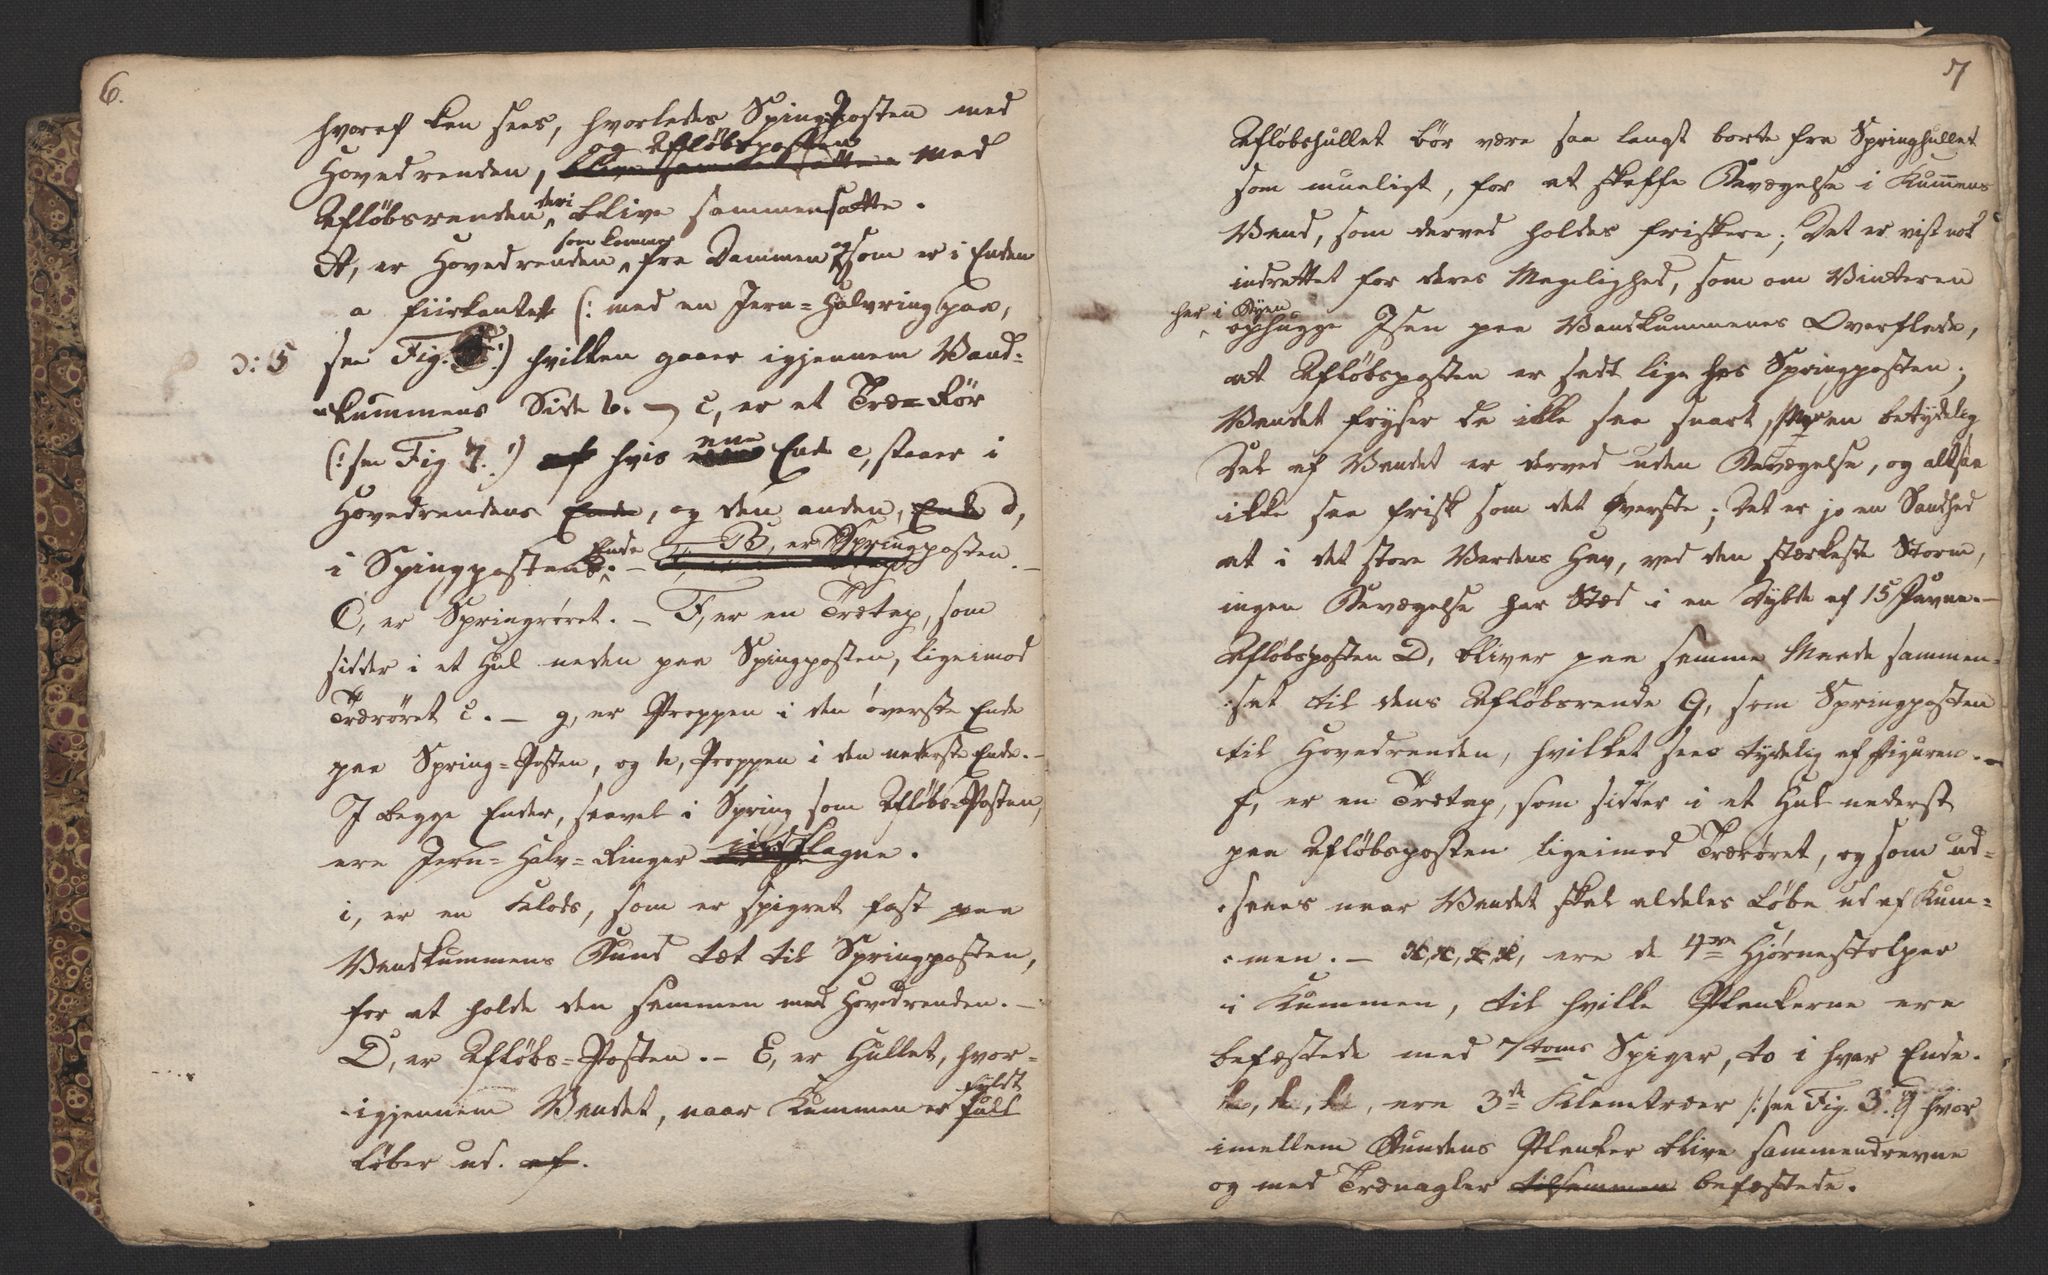 6.
hvoraf kan sees, hvorledes SpingPosten med
og Afløbsposten
Hovedrenden, blive sammensatte med
Afløbsrenden deri blive sammensatte.
A, er Hovedrenden som kommer fra Dammen og som er i Enden
a fiirkantet (: med en Jern=Halvring paa,
ɔ: 5 see Fig. 5 :) hvilken gaaer igjennem Vand-
kummens Side b. – c, er et Træ=Rør
(: see Fig 7. :) af hvis ene Ende e, staaer i
Hovedrendens Ende, og den anden, Ende d,
i Spingpostens Ende. – B, er Springposten. –
C, er Springrøret. – F, er en Trætap, som
sidder i et Hul neden paa Spingposten, ligeimod
Trærøret c. – g, er Proppen i den øverste Ende
paa Spring=Posten, og h, Proppen i den nederste Ende. –
I begge Ender, saavel i Spring som Afløbs=Posten,
ere Jern=Halv=Ringer indslagne.
i, er en Klods, som er spigret fast paa
Vandkummens Bund tæt til Springposten,
for at holde den sammen med Hovedrenden. –
D, er Afløbs=Posten. – E, er Hullet, hvor-
igjennem Vandet, naar Kummen er fyldt fuld
løber ud. af.
7
Afløbshullet bør være saa langt borte fra Springhullet
som mueligt, for at skaffe Bevægelse i Kummens
Vand, som derved holdes friskere; Det er vist nok
indrettet for deres Magelighed, som om Vinteren
her i Byen ophugge Isen paa Vandkummenes Overflade,
at Afløbsposten er sadt lige hos Springposten;
Vandet fryser da ikke saa snart, Men en betydelig
Deel af Vandet er derved uden Bevægelse, og altsaa
ikke saa frisk som det øverste; Det er jo en Sandhed
at i det store Verdens Hav, ved den stærkeste Storm,
ingen Bevægelse har Stæd i en Dybde af 15 Favne. –
Afløbsposten D, bliver paa samme Maade sammen-
sat til dens Afløbsrende G, som Springposten
til Hovedrenden, hvilket sees tydelig af Figuren. –
f, er en Trætap, som sidder i et Hul nederst
paa Afløbsposten ligeimod Trærøret, og som ud-
saaes naar Vandet skal aldeles løbe ud af Kum-
men. – x, x, x, x, ere de 4re Hjørnestolper
i Kummen, til hvilke Plankerne ere
befæstede med 7 toms Spiger, to i hver Ende.
k, k, k, ere 3de Klemtræer /: see Fig. 3. 9 hvor
imellem Bundens Planker blive sammendrevne
og med Trænagler tilsammen befæstede.